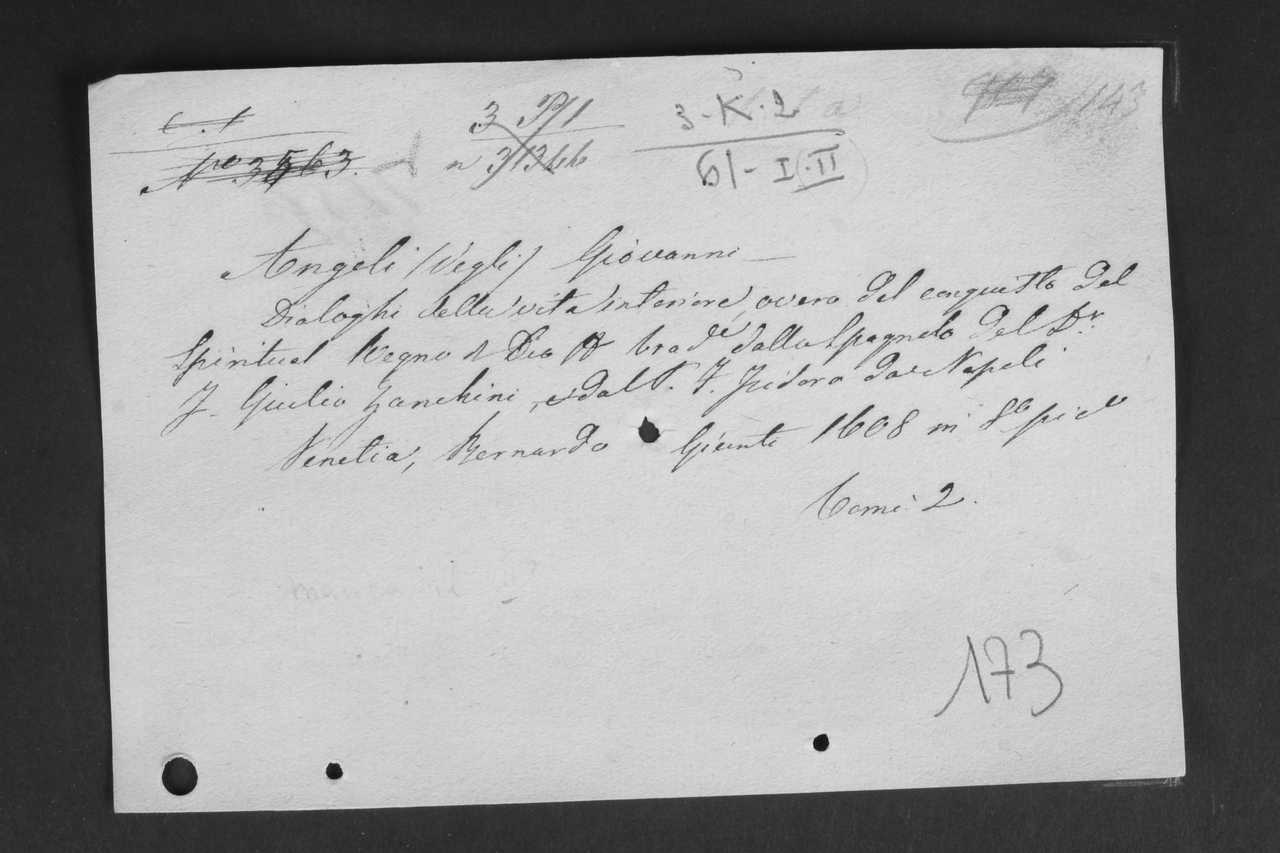 No 3563.
3 P/1
n 3/3
3-K.2
61-I.II
143
Angeli (Degli) Giovanni
Dialoghi della vita interiore, overo del conquisto del
Spiritual Regno di Dio trade dallo Spagnolo del Dr
J. Giulio Zanchini, e dal P. F. Isidoro da Napoli
Venetia, Bernardo Giunti 1608 in 8o pico
Tomi 2.
manca il II
173